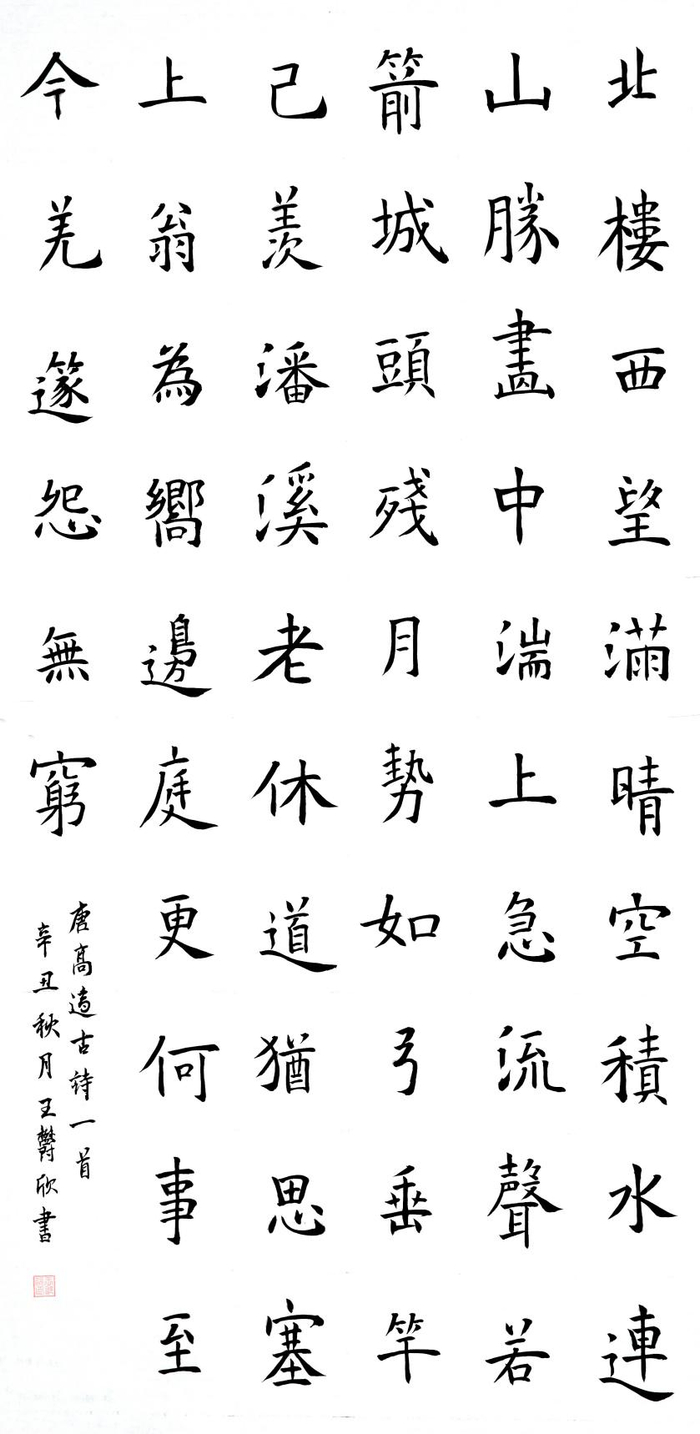 北樓西望滿晴空積水連
山勝畫中湍上急流聲若
箭城頭殘月勢如弓垂竿
己羨潘溪老休道猶思塞
上翁為嚮邊庭更何事至
今羌篴怨無窮
唐高適古詩一首
辛丑秋月王鬱欣書